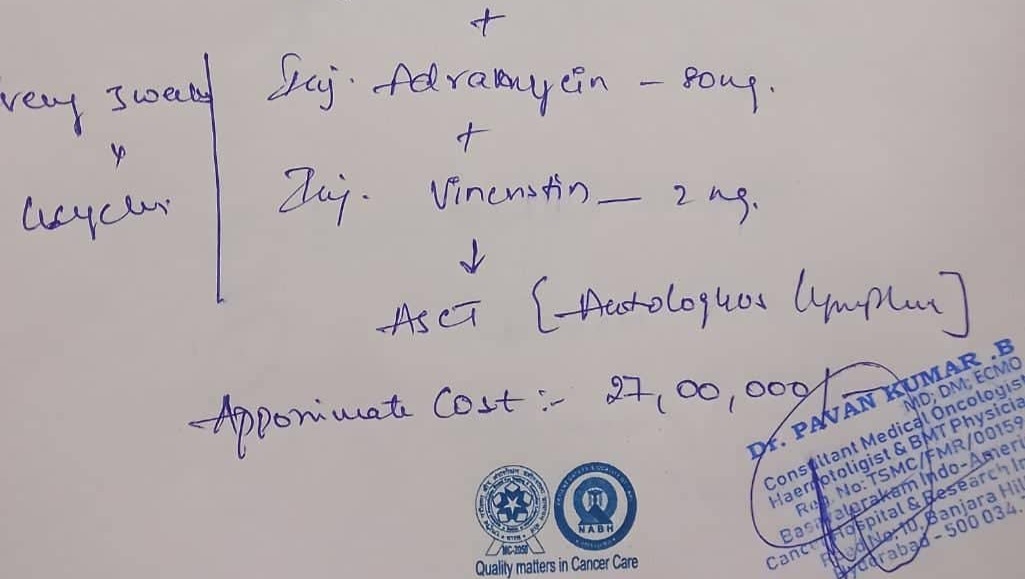 +
every 3 weeks
Inj. Adramycin - 80mg.
+
x
Inj. Vincristin - 2 mg.
↓
ASCT [Autologous
Approximate Cost :- 27,00,000/-
Dr. PAVAN KUMAR .B
MD; DM; ECMO
Consultant Medical Oncologist
Haemotoligist & BMT Physicia
Reg. No: TSMC/FMR/00159
Basavatarakam Indo-Ameri
Cancer Hospital & Research In
Road No. 10, Banjara Hil
Hyderabad - 500 034.
NABH
MC-2050
Quality matters in Cancer Care